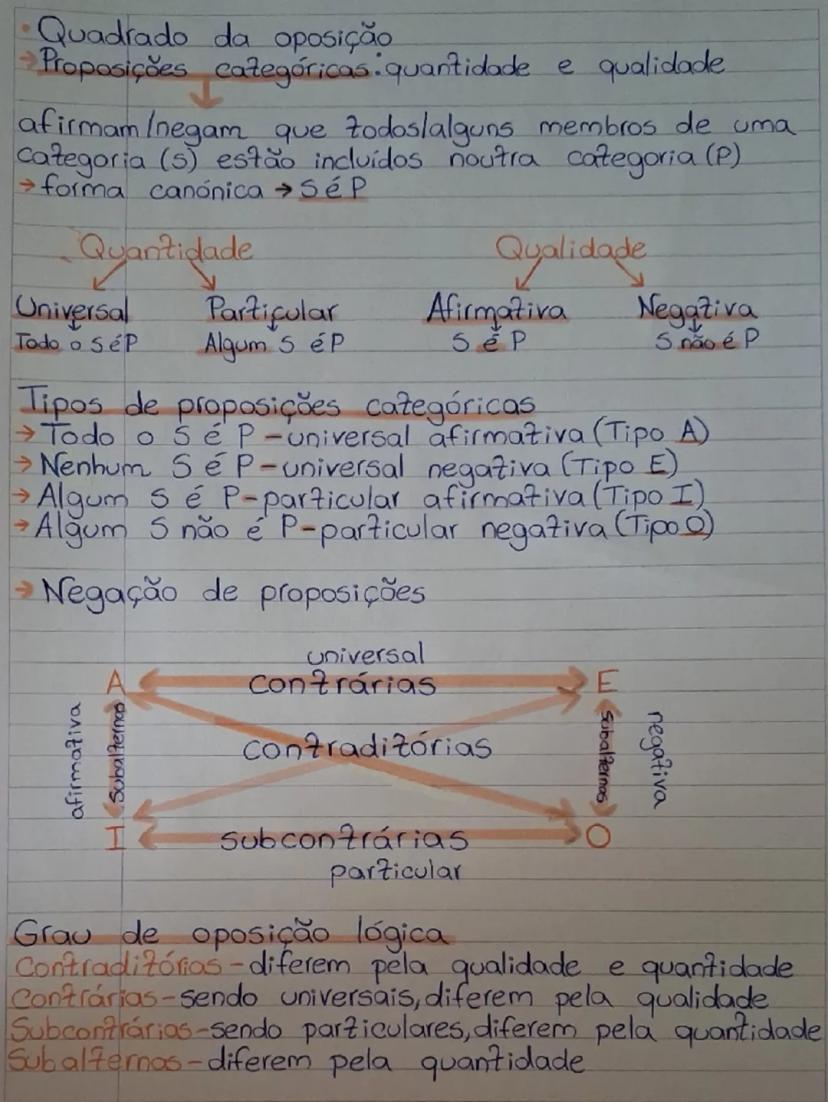 • Quadrado da oposição
→ Proposições categóricas: quantidade e qualidade
afirmam/negam que todos/alguns membros de uma
categoria (S) estão incluídos noutra categoria (P)
→ forma canónica → S é P
Quantidade Qualidade
Universal Particular Afirmativa Negativa
Todo o S é P Algum S é P S é P S não é P
Tipos de proposições categóricas
→ Todo o S é P - universal afirmativa (Tipo A)
→ Nenhum S é P - universal negativa (Tipo E)
→ Algum S é P - particular afirmativa (Tipo I)
→ Algum S não é P - particular negativa (Tipo O)
→ Negação de proposições
universal
A contrárias E
afirmativa subalternas contraditórias subalternas negativa
I subcontrárias O
particular
Grau de oposição lógica
Contraditórias - diferem pela qualidade e quantidade
Contrárias - sendo universais, diferem pela qualidade
Subcontrárias - sendo particulares, diferem pela quantidade
Subalternas - diferem pela quantidade